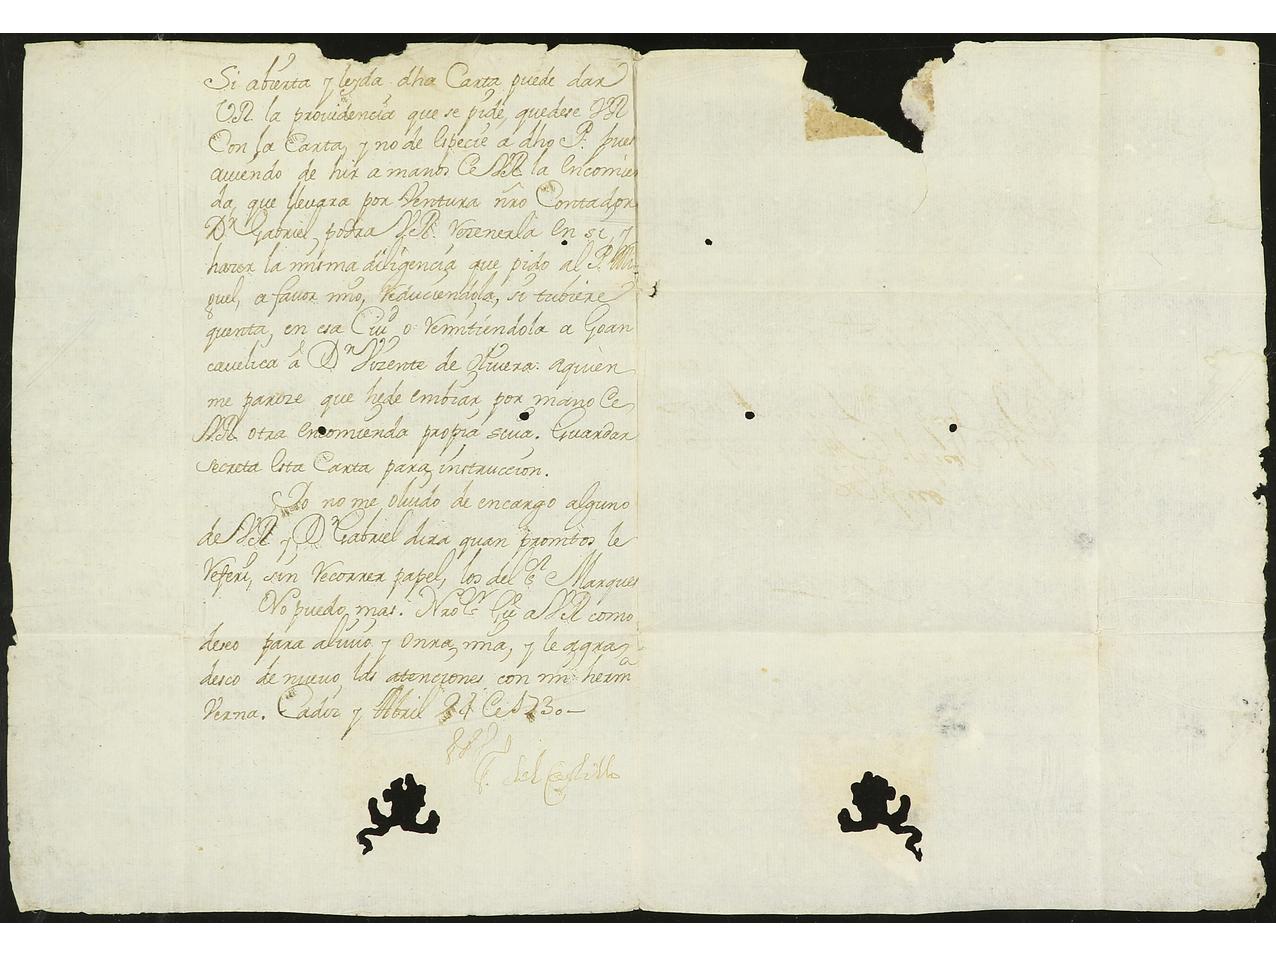 Si abierta y leyda dha Carta puede dar
VR la providencia que se pide, quedese VR
Con la Carta, y no de especie a dho P. pues
aviendo de hir a manos de VR la encomien
da, que llevara por Ventura nro Contador
Dn Gabriel, podra VR. retenerla en si, y
hazer la misma diligencia que pido al P. Mi-
guel, a favor mio, reduciendola, si tubiere
quenta, en esa Ciud o remitiendola a Goan
cavelica â Dn Vizente de Olivera: aquien
me pareze que hede embiar por mano de
VR otra encomienda propia suia. Guardar
secreta esta Carta para instruccion.
Yo no me olvido de encargo alguno
de VR y Dn Gabriel dira quan promtos le
referi, sin recorrer papel, los del Sr Marques
No puedo mas. Nro Sr Gue a VR como
deseo para alivio y onra mia, y le agra-
desco de nuevo las atenciones con mi herma
Verna. Cadiz y Abril 24 de 1730-
del Castillo